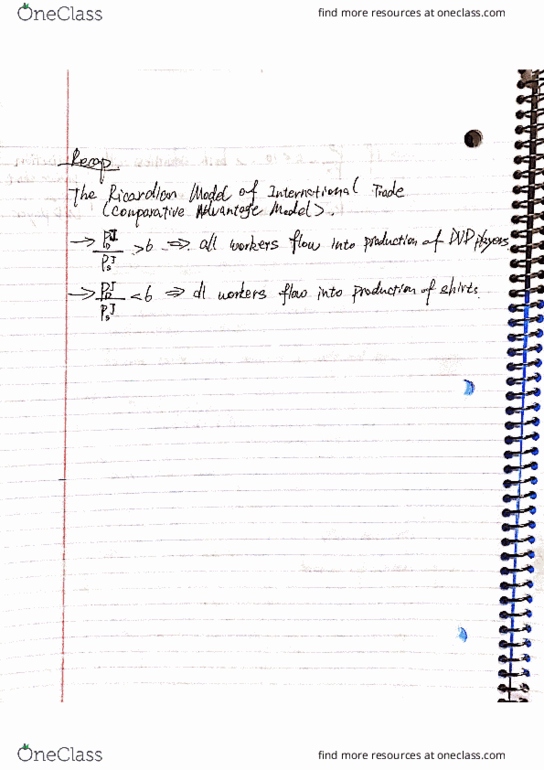 OneClass
find more resources at oneclass.com
Recap
The Ricardian Model of International Trade
(Comparative Advantage Model>.
→ P_D^J / P_S^J >6 ⇒ all workers flow into production of DVD players
→ P_D^J / P_S^J <6 ⇒ all workers flow into production of shirts.
OneClass
find more resources at oneclass.com